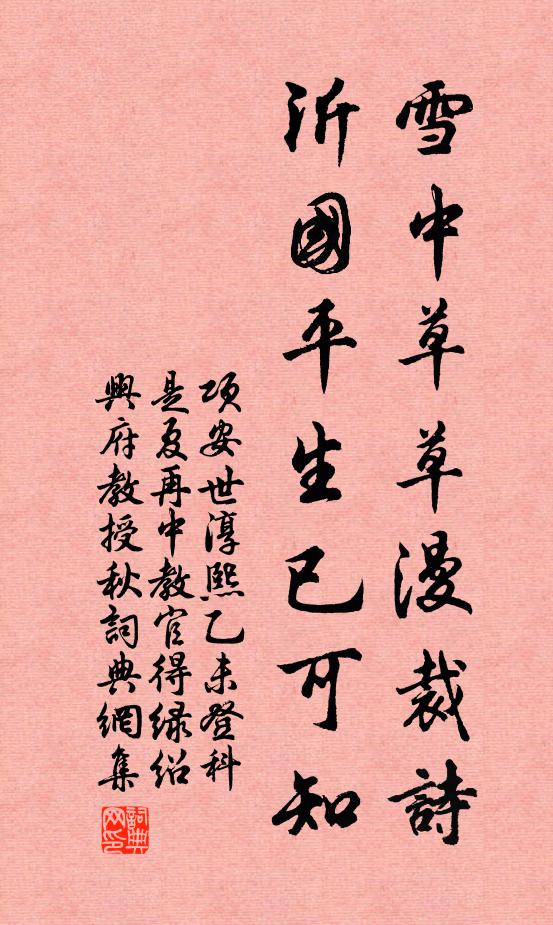 雪中草草漫裁詩
沂國平生已可知
项安世淳熙乙未登科
是夏再中教官得绿绍
興府教授秋詞典網集
詞典
网印